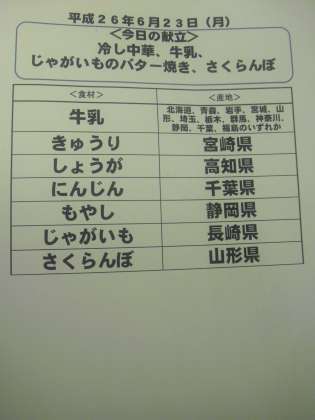 平成２６年６月２３日（月）
＜今日の献立＞
冷し中華、牛乳、
じゃがいものバター焼き、さくらんぼ
＜食材＞ ＜産地＞
牛乳 北海道、青森、岩手、宮城、山
形、埼玉、栃木、群馬、神奈川、
静岡、千葉、福島のいずれか
きゅうり 宮崎県
しょうが 高知県
にんじん 千葉県
もやし 静岡県
じゃがいも 長崎県
さくらんぼ 山形県